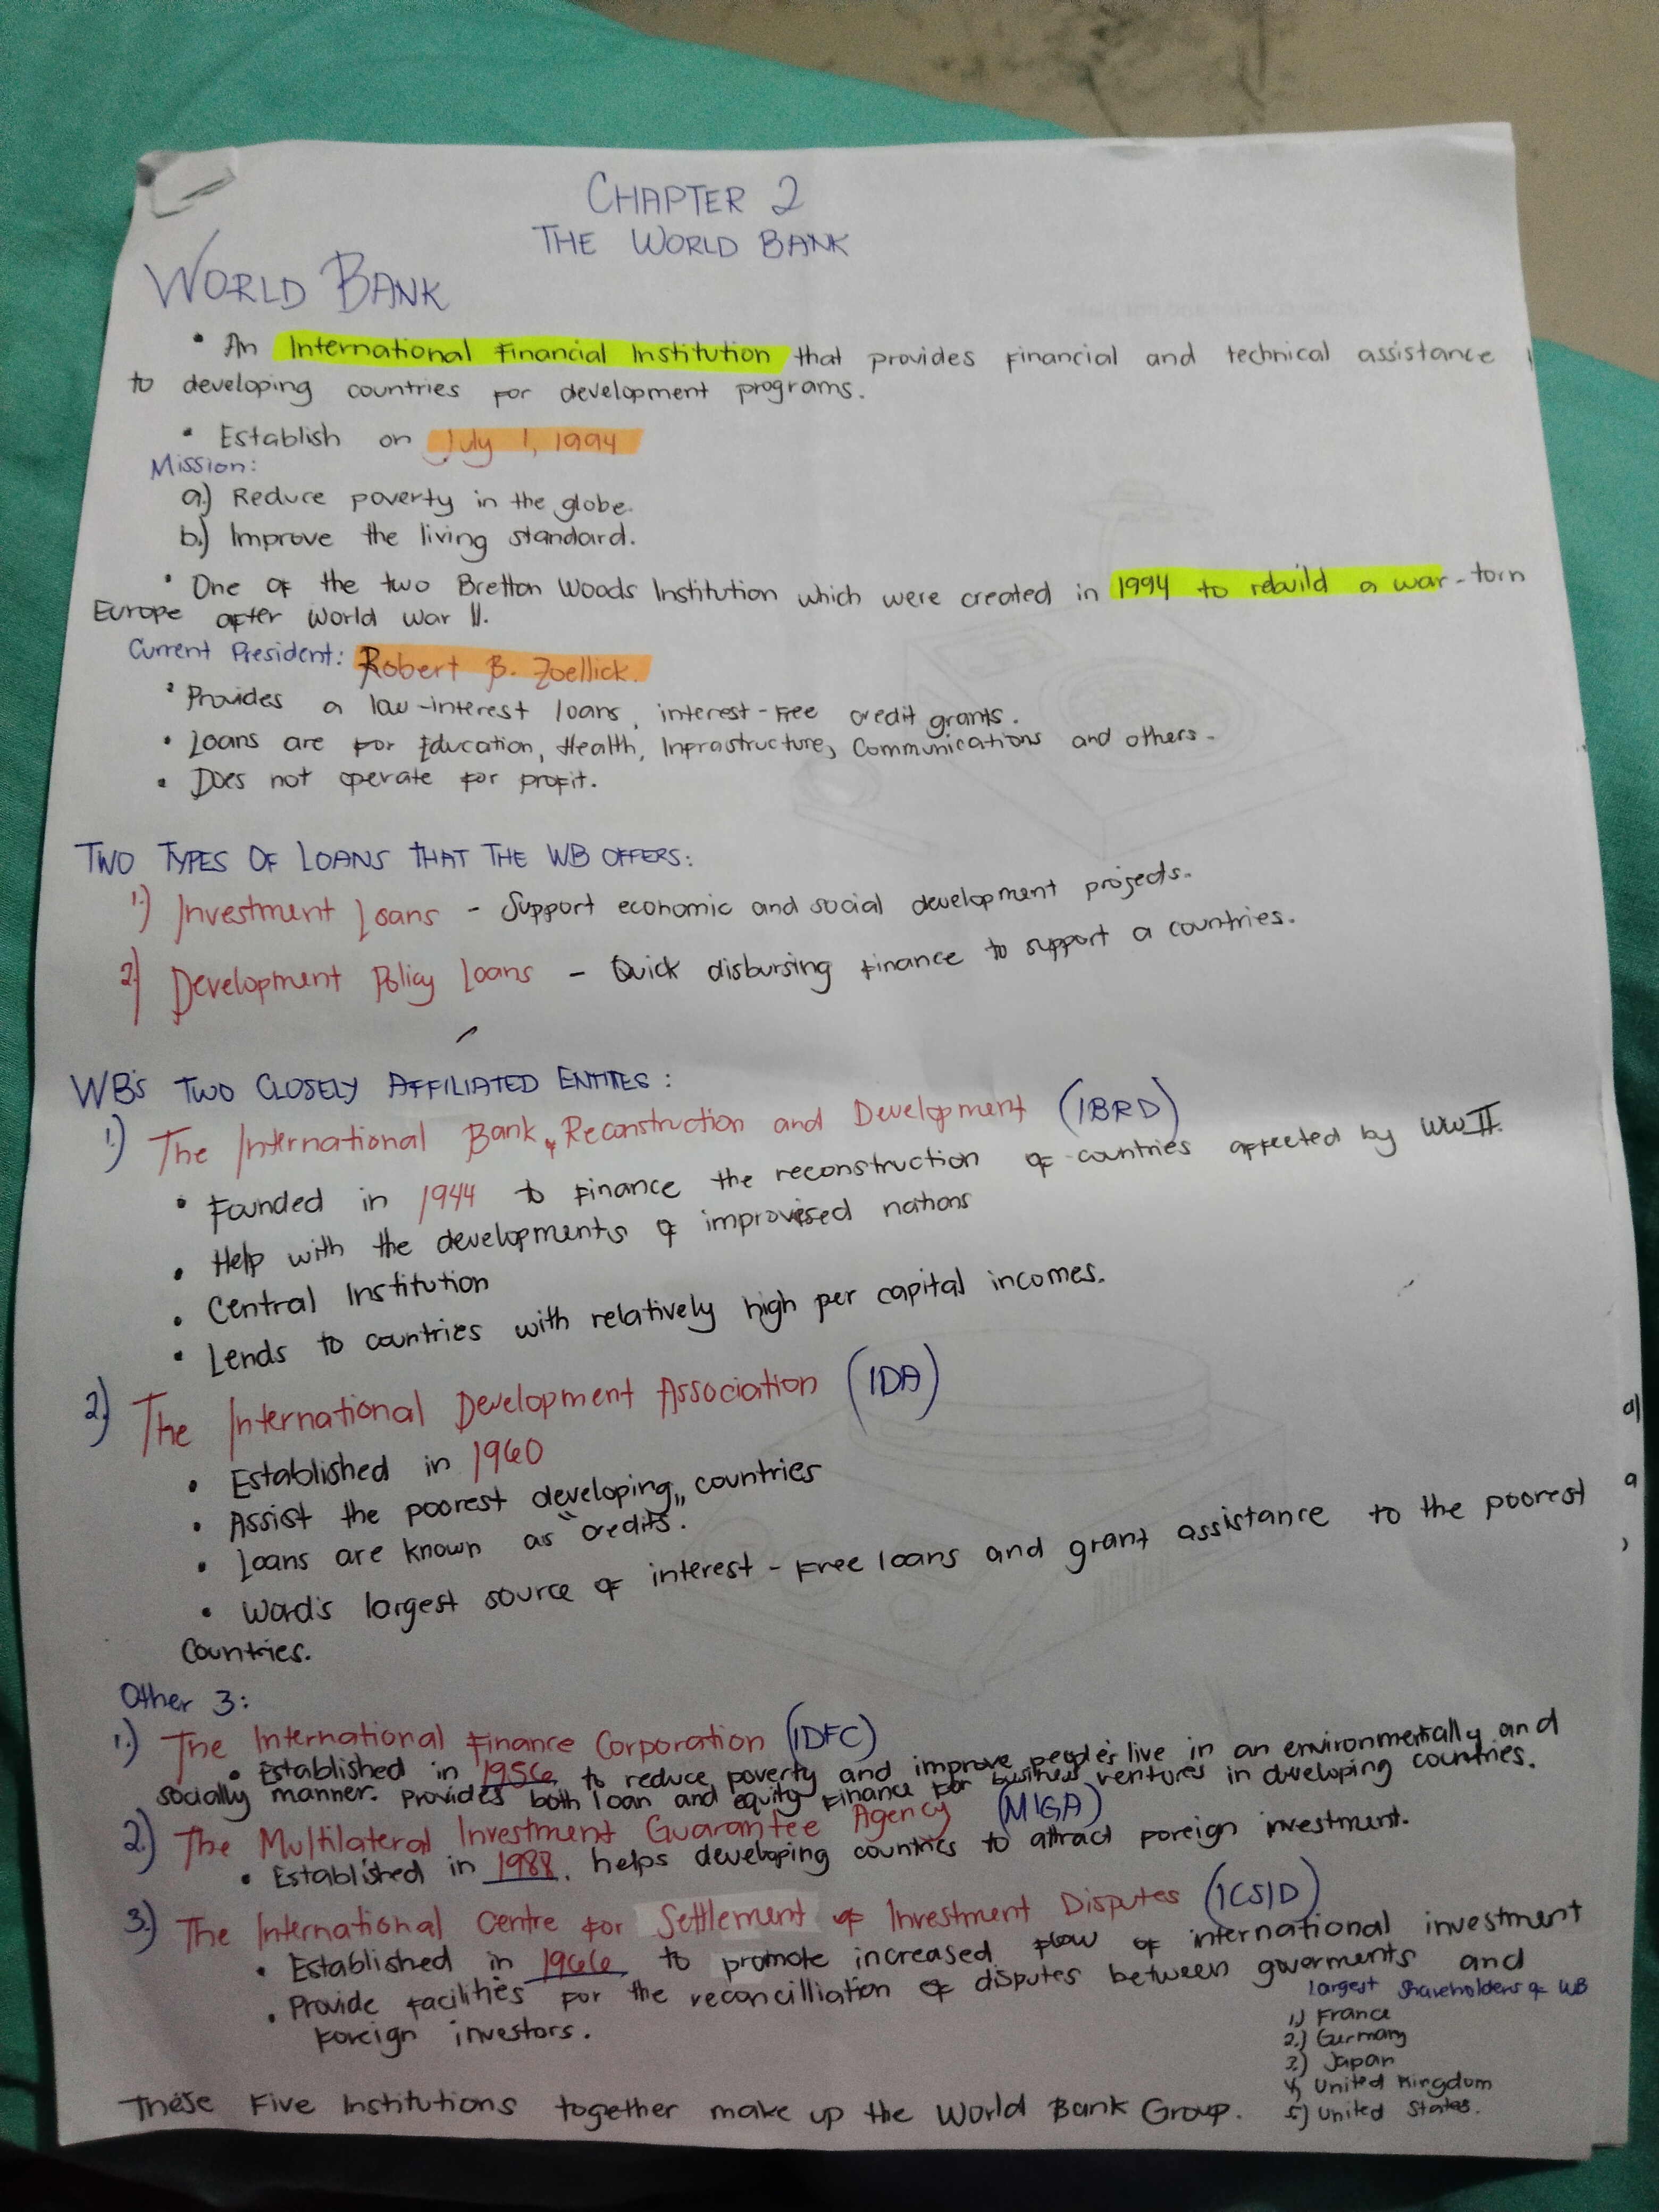 CHAPTER 2
THE WORLD BANK
WORLD BANK
• An International Financial Institution that provides financial and technical assistance
to developing countries for development programs.
• Establish on July 1, 1994
Mission:
a) Reduce poverty in the globe.
b.) Improve the living standard.
• One of the two Bretton Woods Institution which were created in 1994 to rebuild a war-torn
Europe after World War II.
Current President: Robert B. Zoellick.
• Provides a low-interest loans, interest-free credit grants.
• Loans are for Education, Health, Infrastructure, Communications and others.
• Does not operate for profit.
TWO TYPES OF LOANS THAT THE WB OFFERS:
1.) Investment Loans - Support economic and social development projects.
2) Development Policy Loans - Quick disbursing finance to support a countries.
WB's TWO CLOSELY AFFILIATED ENTITIES:
1.) The International Bank, Reconstruction and Development (IBRD)
• Founded in 1944 to finance the reconstruction of countries affected by WWII.
• Help with the developments of improvised nations
• Central Institution
• Lends to countries with relatively high per capital incomes.
2.) The International Development Association (IDA)
• Established in 1960
• Assist the poorest developing countries
• Loans are known as "credits".
• Word's largest source of interest-free loans and grant assistance to the poorest
Countries.
Other 3:
1.) The International Finance Corporation (IDFC)
• Established in 1956 to reduce poverty and improve people's live in an environmentally and
socially manner. Provides both loan and equity finance for business ventures in developing countries.
2.) The Multilateral Investment Guarantee Agency (MIGA)
• Established in 1988. helps developing countries to attract foreign investment.
3.) The International Centre for Settlement of Investment Disputes (ICSID)
• Established in 1966 to promote increased flow of international investment
• Provide facilities for the reconcilliation of disputes between goverments and
foreign investors.
largest shareholders of WB
1.) France
2.) Germany
3.) Japan
4) United Kingdom
5) United States.
These Five Institutions together make up the World Bank Group.